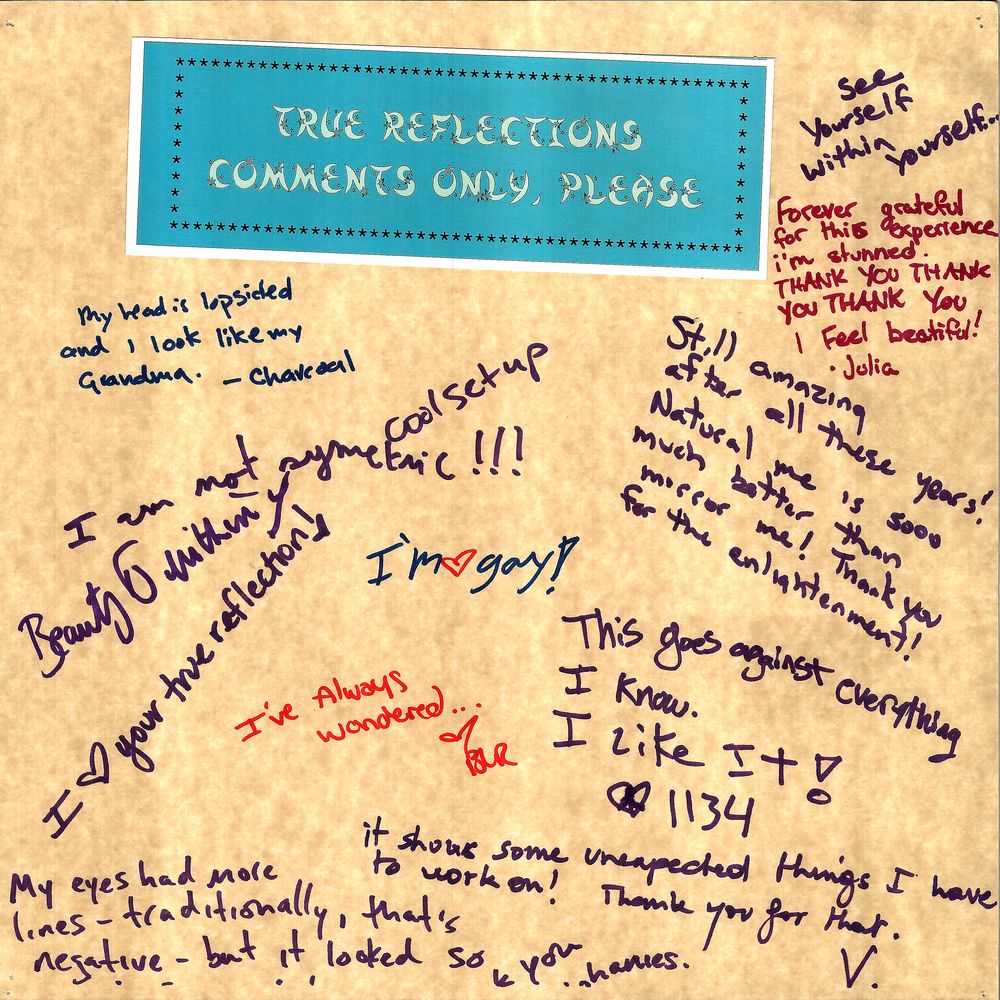 TRUE REFLECTIONS
COMMENTS ONLY, PLEASE
see
Yourself
within yourself...
Forever grateful
for this experience
i'm stunned.
THANK YOU THANK
YOU THANK YOU
I Feel beatiful!
· Julia
My head is lopsided
and I look like my
Grandma. - Charcoal
cool set up
I am not symetric!!!
Beauty within
I ♡ your true reflections!
Still amazing
after all these years!
Natural me is sooo
much batter than
mirror me! Thank you
for the enlightenment!
I'm ♡ gay!
I've Always
wondered...
♡
This goes against everything
I know.
I like It!
♡ 1134
it shows some unexpected things I have
to work on! Thank you for that.
V.
My eyes had more
lines - traditionally, that's
negative - but it looked so
you